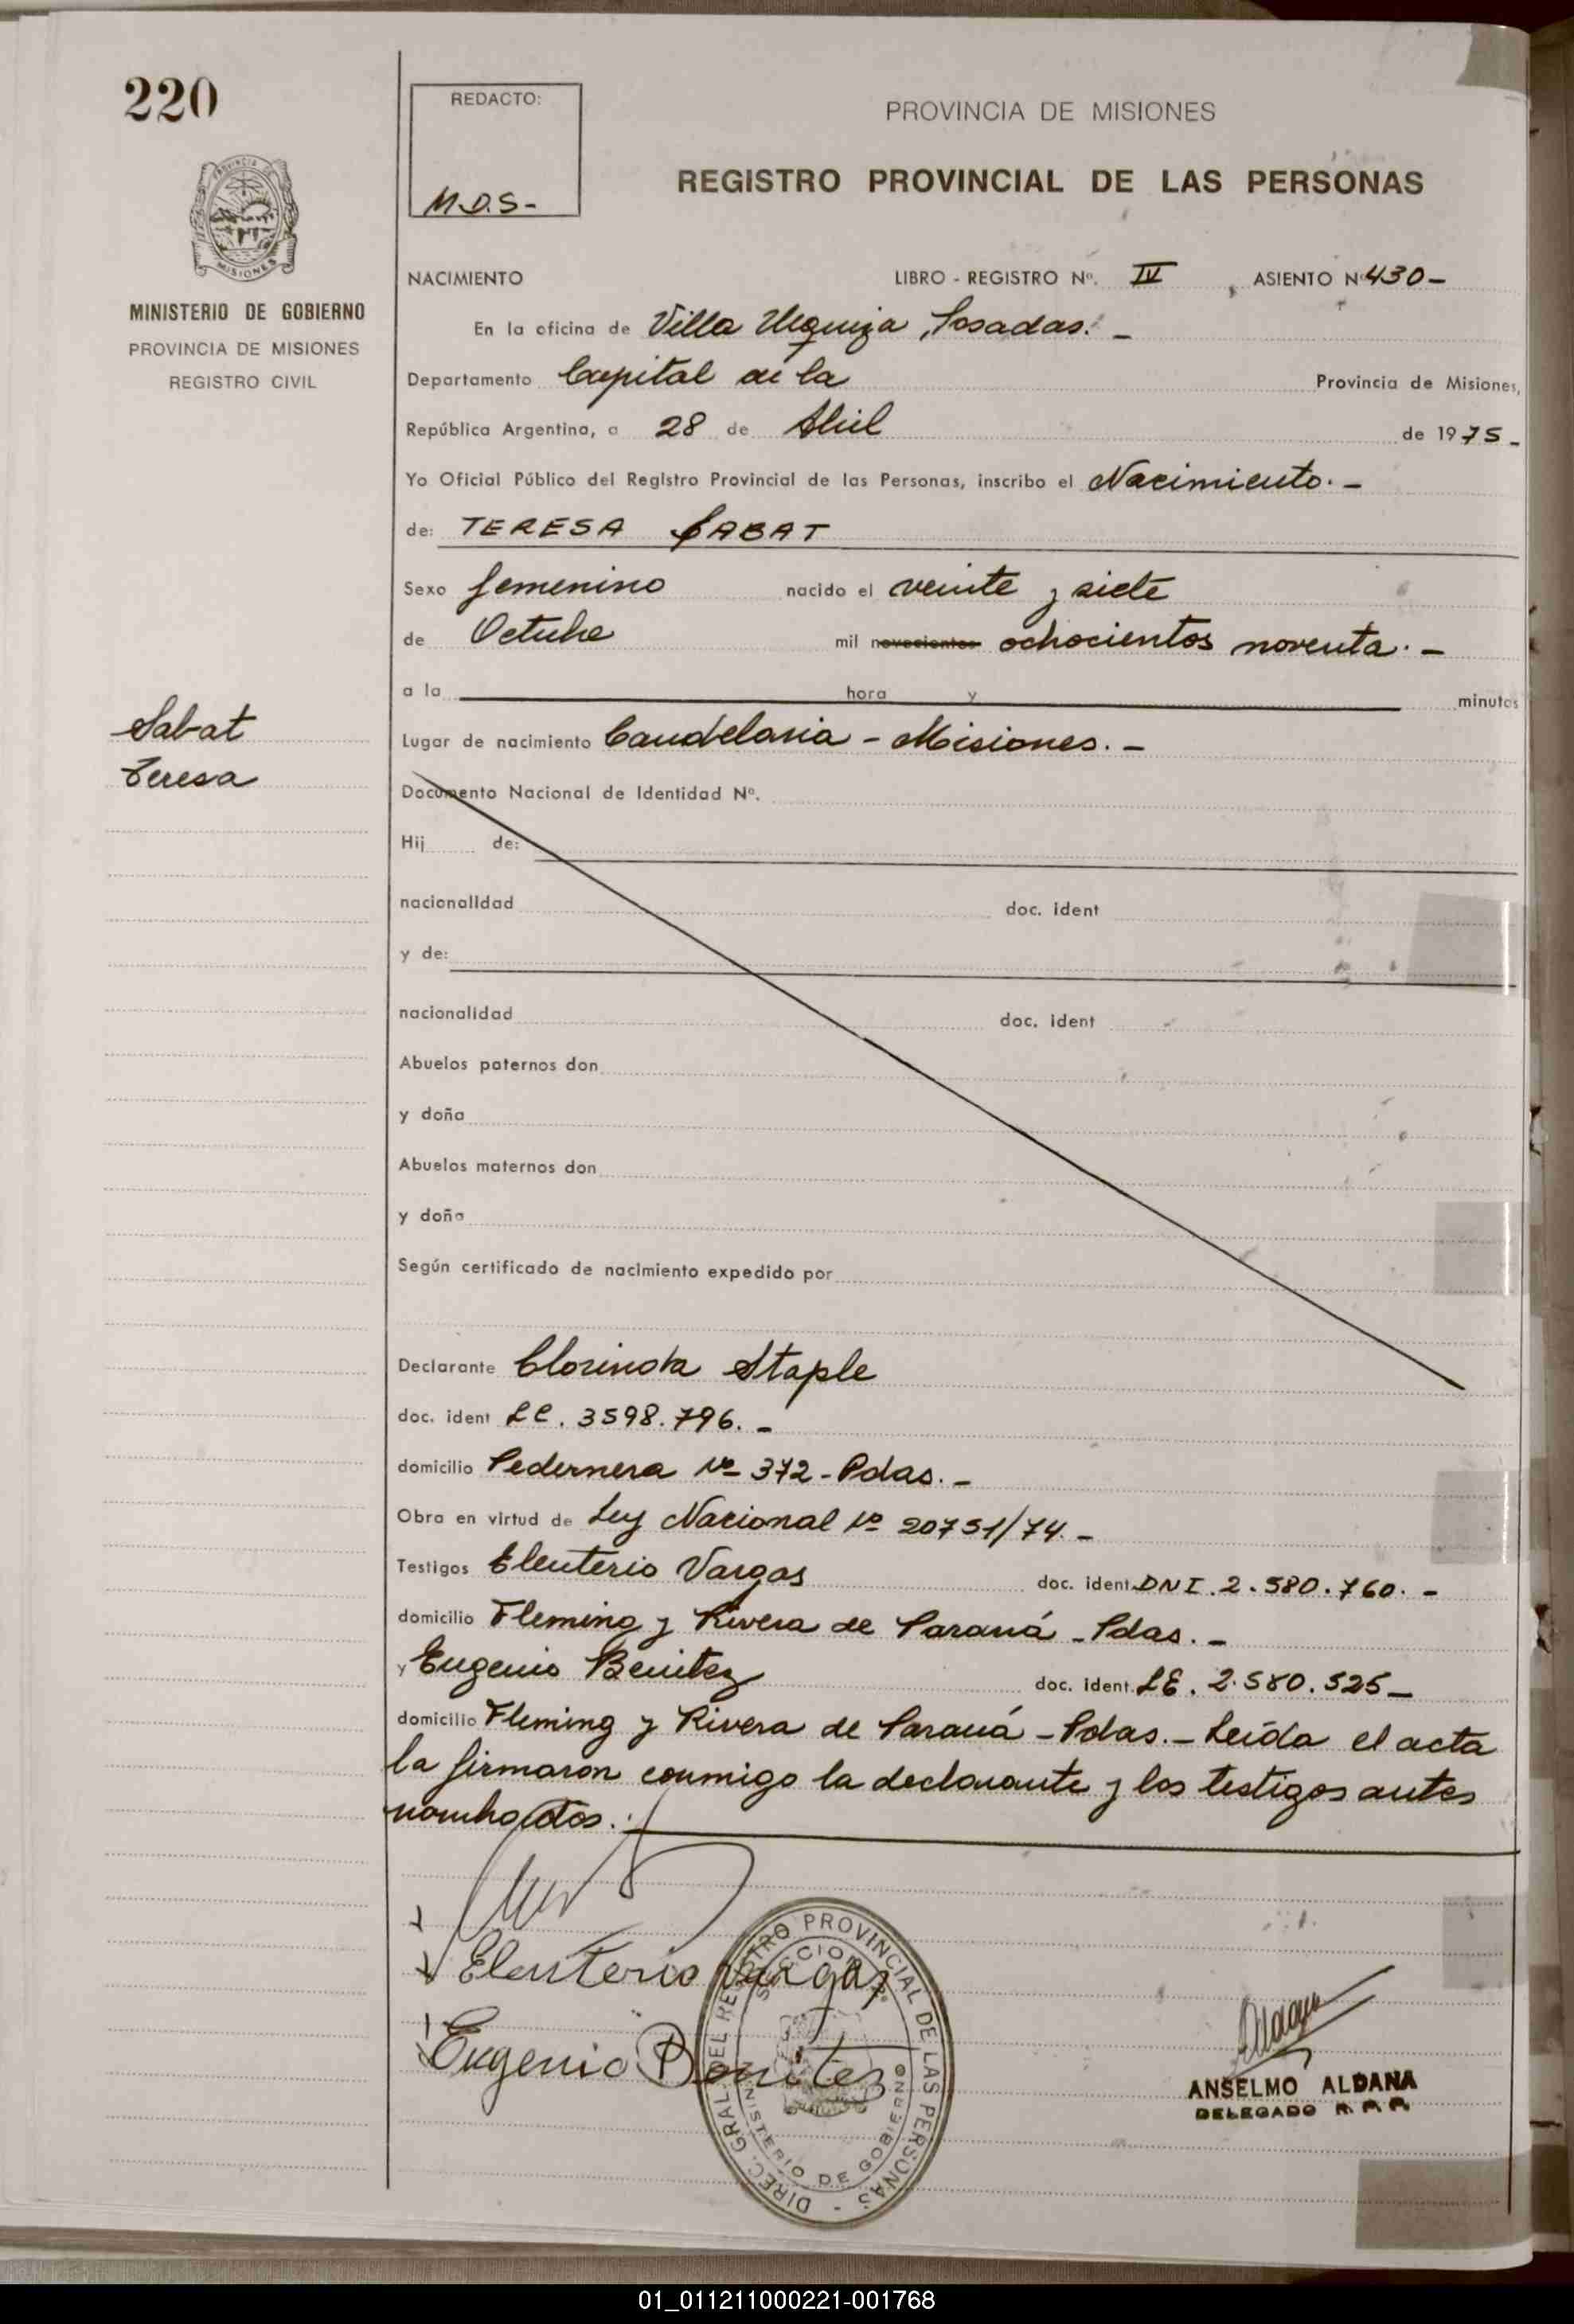 220
REDACTO:
M.D.S-
PROVINCIA DE MISIONES
REGISTRO PROVINCIAL DE LAS PERSONAS
PROVINCIA DE
MISIONES
MINISTERIO DE GOBIERNO
PROVINCIA DE MISIONES
REGISTRO CIVIL
NACIMIENTO LIBRO - REGISTRO Nº. IV , ASIENTO Nº 430-
En la oficina de Villa Urquiza, Posadas. -
Departamento Capital de la Provincia de Misiones,
República Argentina, a 28 de Abril de 1975-
Yo Oficial Público del Registro Provincial de las Personas, inscribo el Nacimiento. -
de: TERESA SABAT
Sexo femenino nacido el veinte y siete
de Octubre mil novecientos ochocientos noventa. -
a la hora y minutos
Sabat
Teresa
Lugar de nacimiento Candelaria - Misiones. -
Documento Nacional de Identidad Nº.
Hij de:
nacionalidad doc. ident
y de:
nacionalidad doc. ident
Abuelos paternos don
y doña
Abuelos maternos don
y doña
Según certificado de nacimiento expedido por
Declarante Clorinda Staple
doc. ident LC. 3598.796. -
domicilio Pedernera Nº 372 - Pdas. -
Obra en virtud de Ley Nacional Nº 20751/74. -
Testigos Eleuterio Vargas doc. ident. DNI. 2.580.760. -
domicilio Fleming y Rivera de Paraná - Pdas. -
y Eugenio Benitez doc. ident. LE. 2.580.525-
domicilio Fleming y Rivera de Paraná - Pdas. - Leída el acta
la firmaron conmigo la declarante y los testigos antes
nombrados. -
Eleuterio Vargas
Eugenio Benitez
DIREC. GRAL. DEL REGISTRO PROVINCIAL DE LAS PERSONAS -
SECCION
MINISTERIO DE GOBIERNO
ANSELMO ALDANA
DELEGADO R. P. P.
01_011211000221-001768